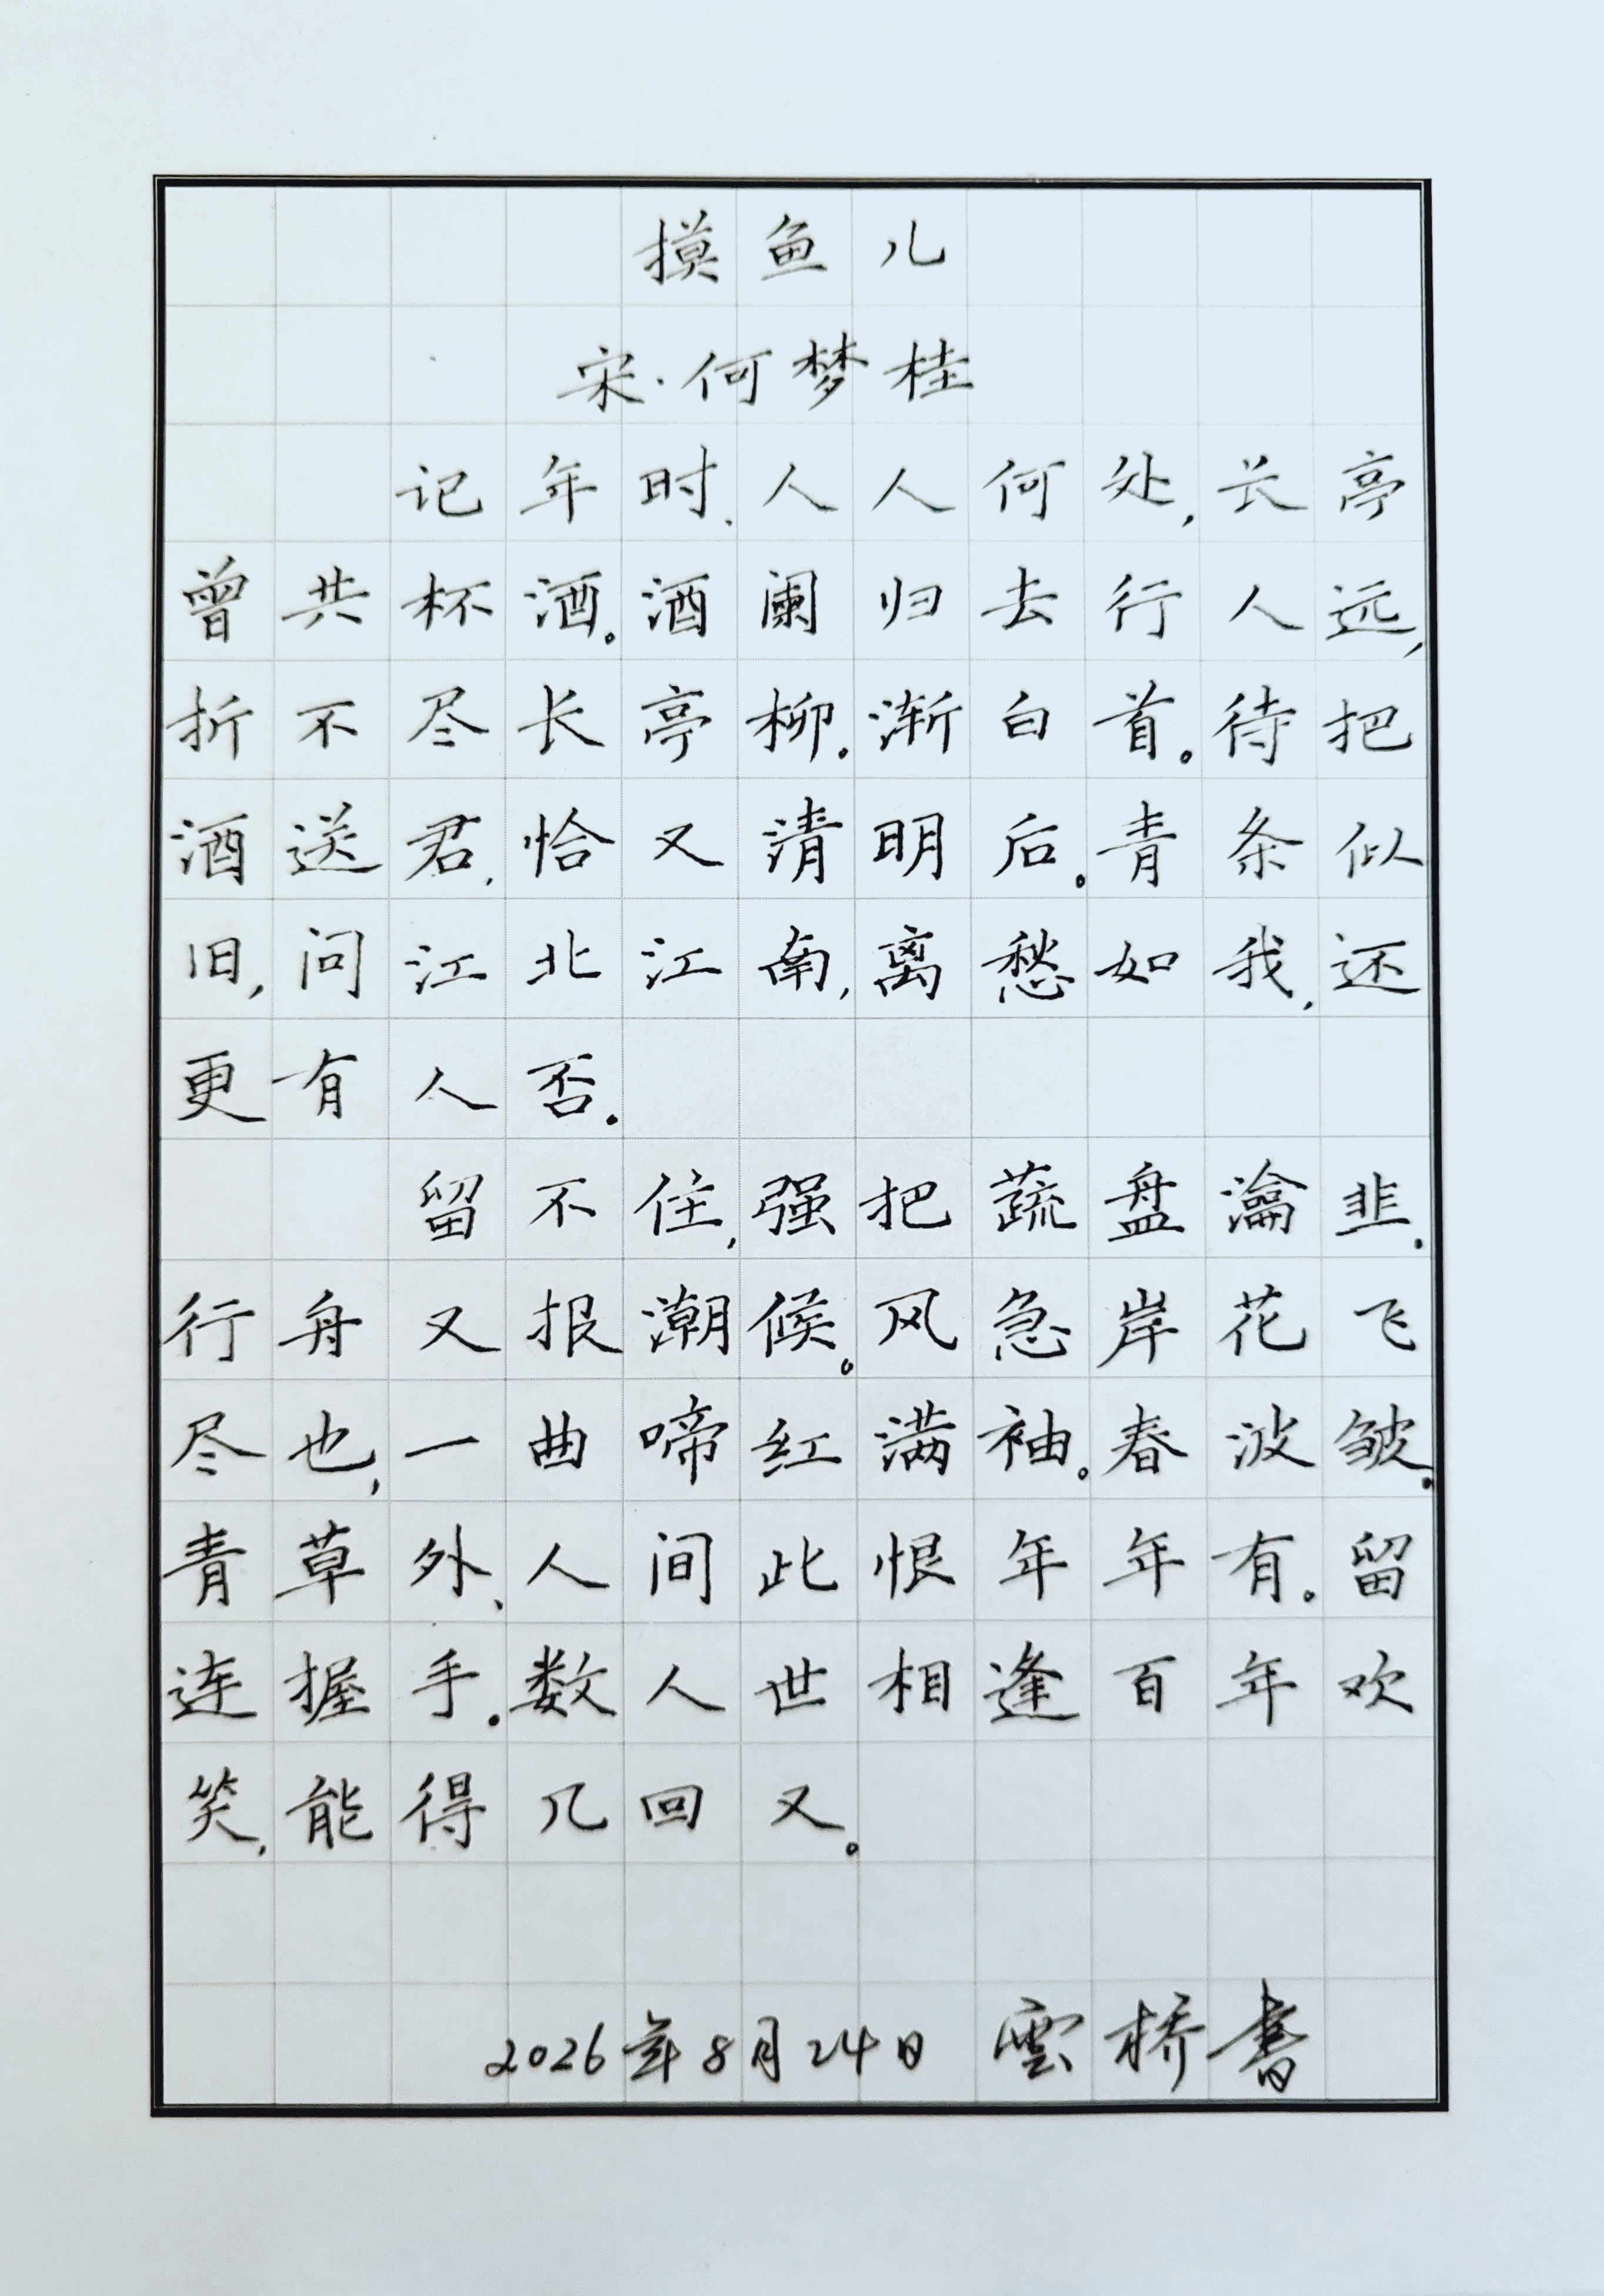 摸鱼儿
宋·何梦桂
记年时,人人何处,长亭
曾共杯酒。酒阑归去行人远,
折不尽长亭柳。渐白首。待把
酒送君,恰又清明后。青条似
旧,问江北江南,离愁如我,还
更有人否。
留不住,强把蔬盘瀹韭。
行舟又报潮候。风急岸花飞
尽也,一曲啼红满袖。春波皱。
青草外、人间此恨年年有。留
连握手。数人世相逢百年欢
笑,能得几回又。
2026年8月24日 雲桥書